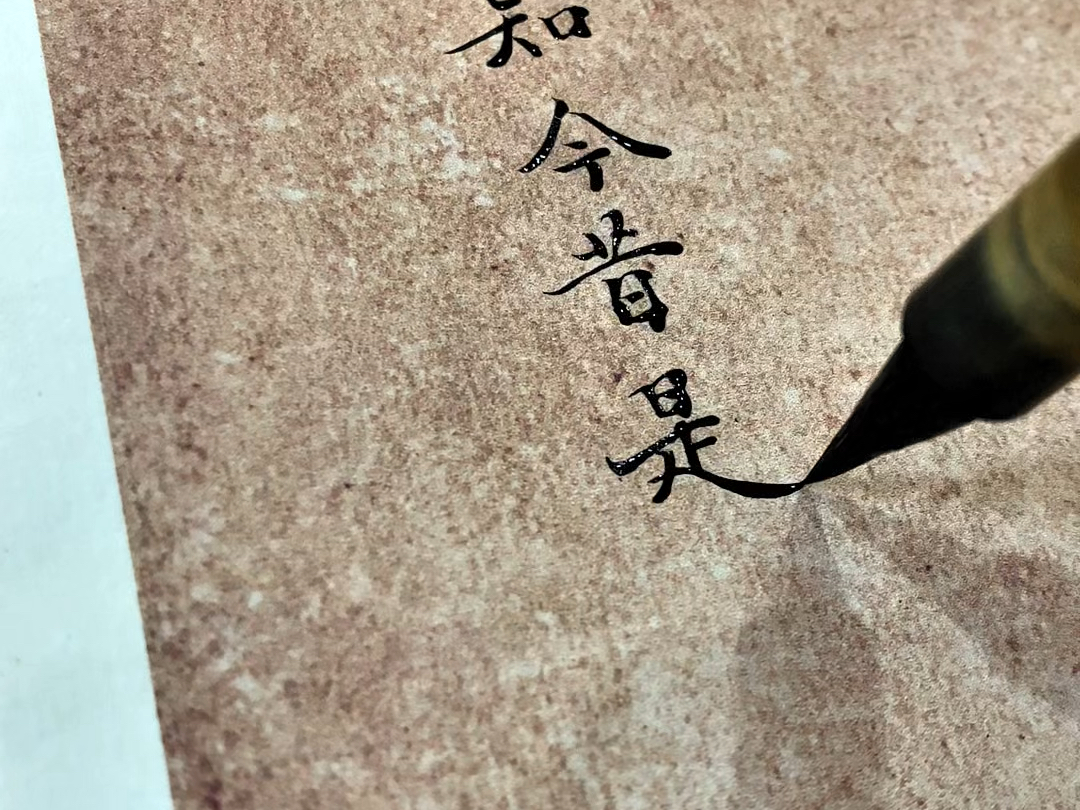 知今昔是